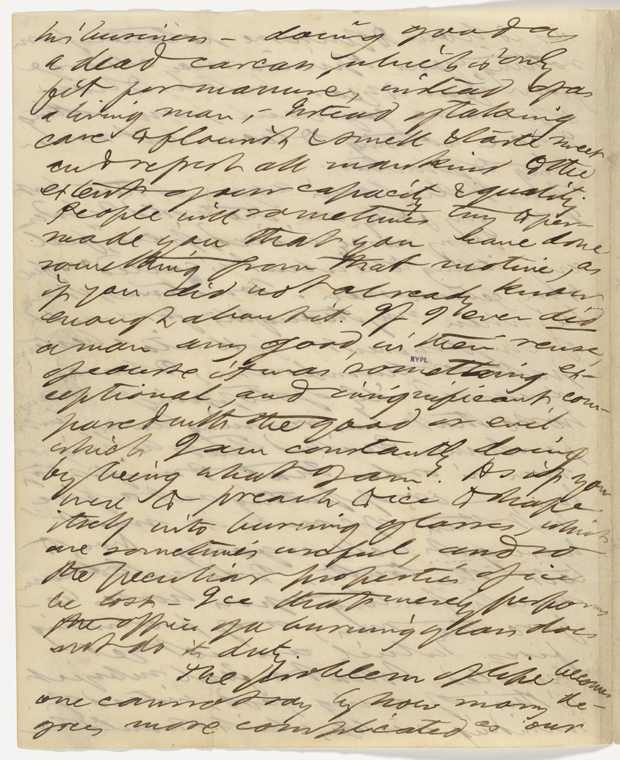 his business – doing good as
a dead carcass, which is only
fit for manure, instead of as
a living man, – Instead of taking
care to flourish & smell & taste sweet
and refresh all mankind to the
extent of our capacity & quality.
People will sometimes try to per-
suade you that you have done
something from that motive, as
if you did not already know
enough about it. If I ever did
a man any good, in their sense,
of course it was something ex-
NYPL
ceptional, and insignificant com-
pared with the good or evil
which I am constantly doing
by being what I am. As if you
were to preach to ice to shape
itself into burning glasses, which
are sometimes useful, and so
the peculiar properties of ice
be lost – Ice that merely performs
the office of a burning glass does
not do its duty.
The problem of life becomes
one cannot say by how many de-
grees more complicated as our